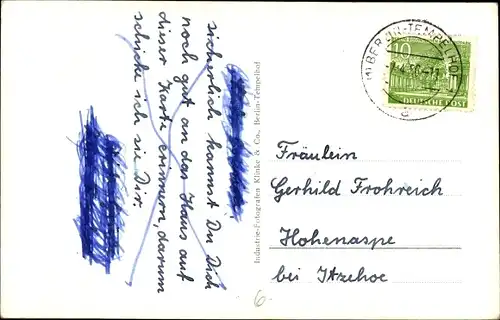 sicherlich kannst Du Dich
noch gut an das Haus auf
dieser Karte erinnern, darum
schicke ich sie Dir.
Industrie-Fotografen Klinke & Co., Berlin-Tempelhof
(1) BERLIN-TEMPELHOF
d
10
DEUTSCHE POST
Fräulein
Gerhild Frohreich
Hohenaspe
bei Itzehoe
6.